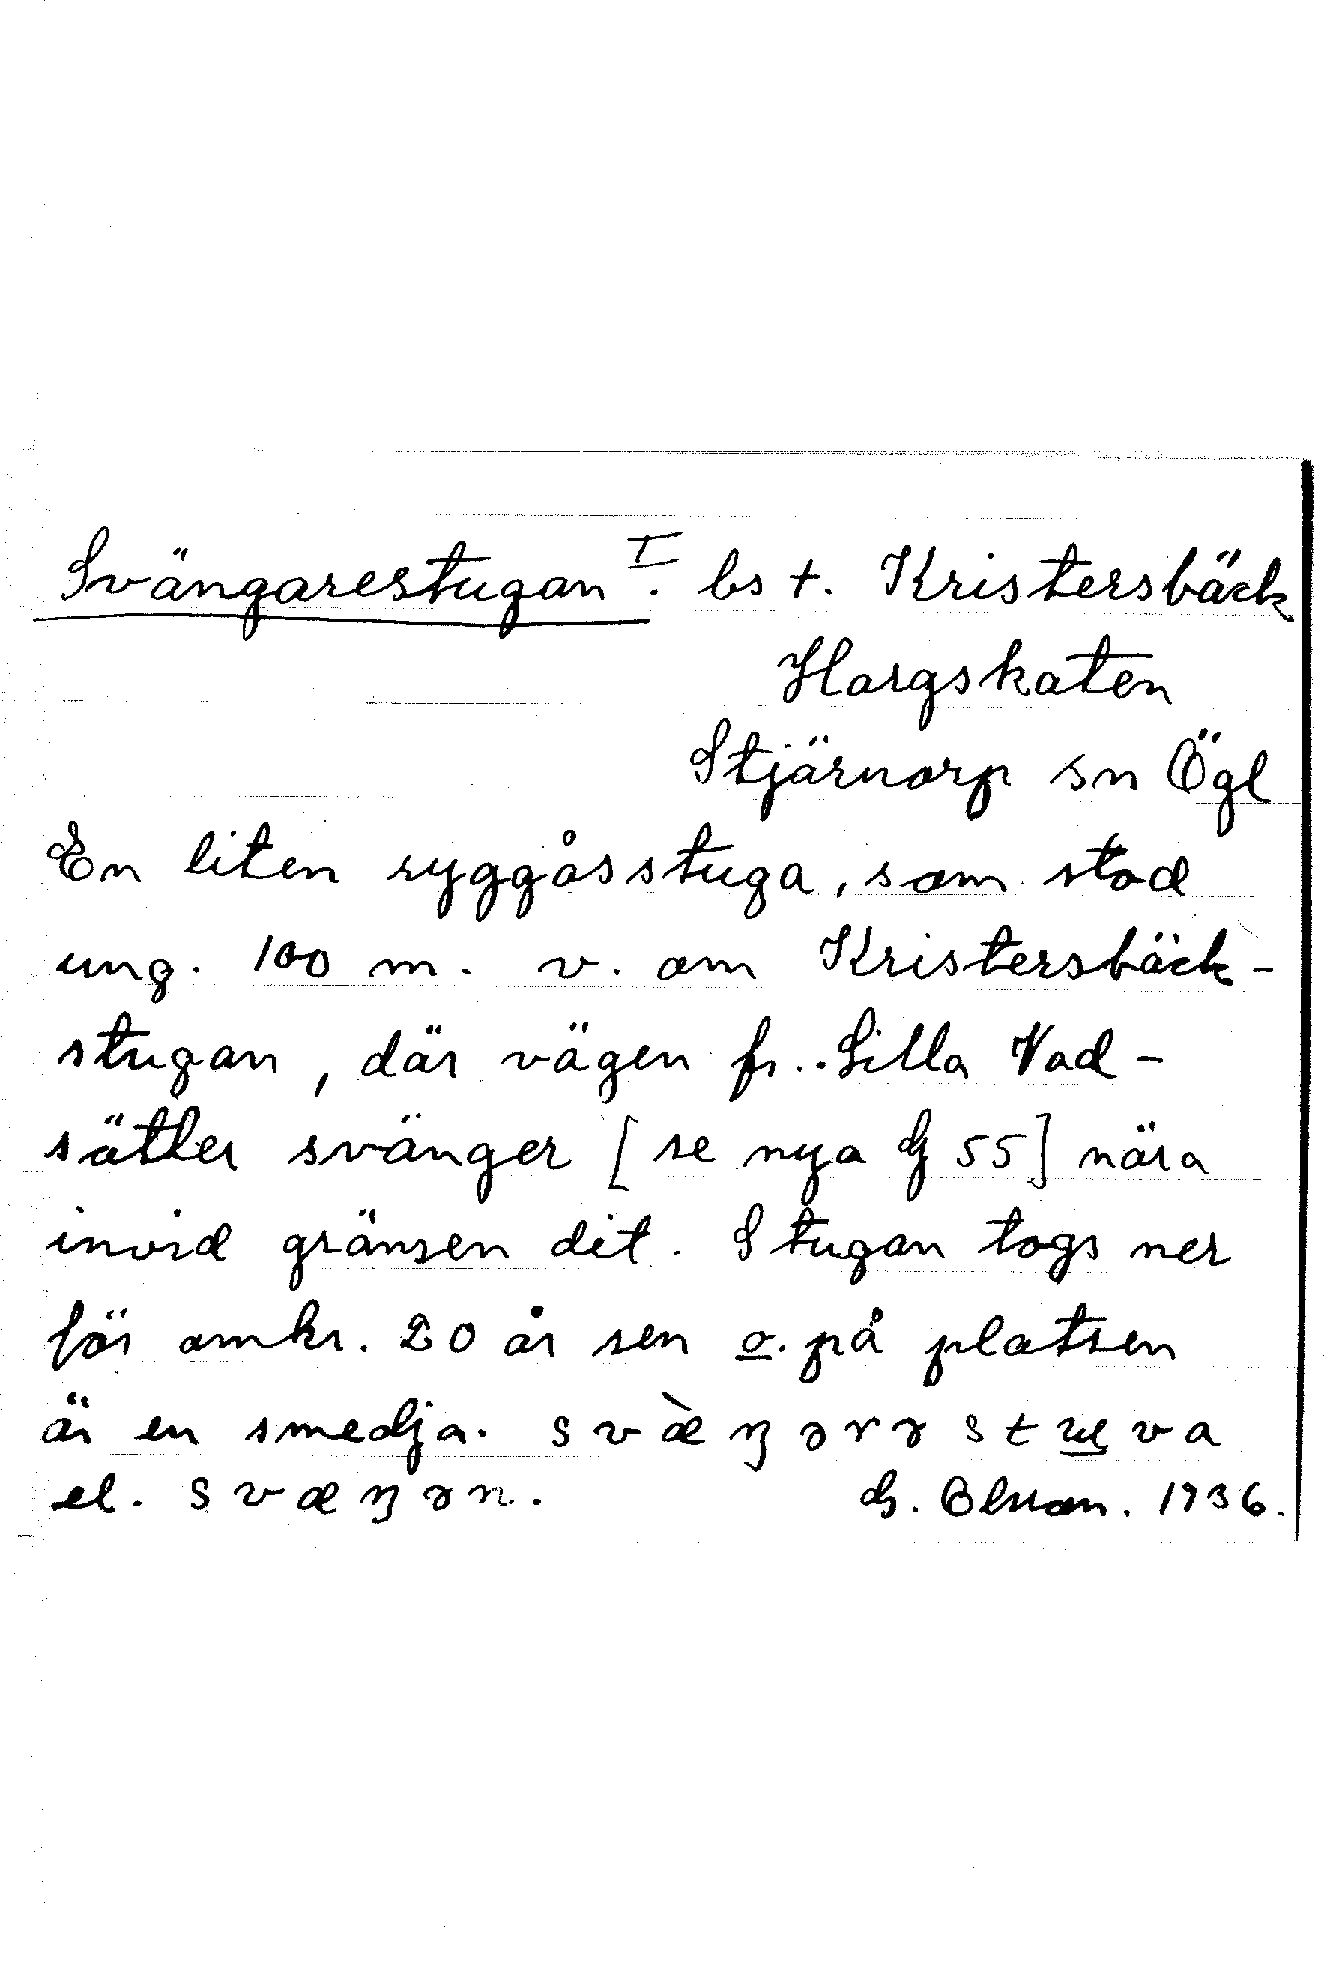 Svängarestugan I. bs t. Kristersbäck
Hargskaten
Stjärnorp sn Ögl
En liten ryggåsstuga, som stod
ung. 100 m. v. om Kristersbäck-
stugan, där vägen fr. Lilla Vad-
sätter svänger [se nya G 55] nära
invid gränsen dit. Stugan togs ner
för omkr. 20 år sen o. på platsen
är en smedja. svæ̀ŋərə
el. svæŋən. G. 1936.